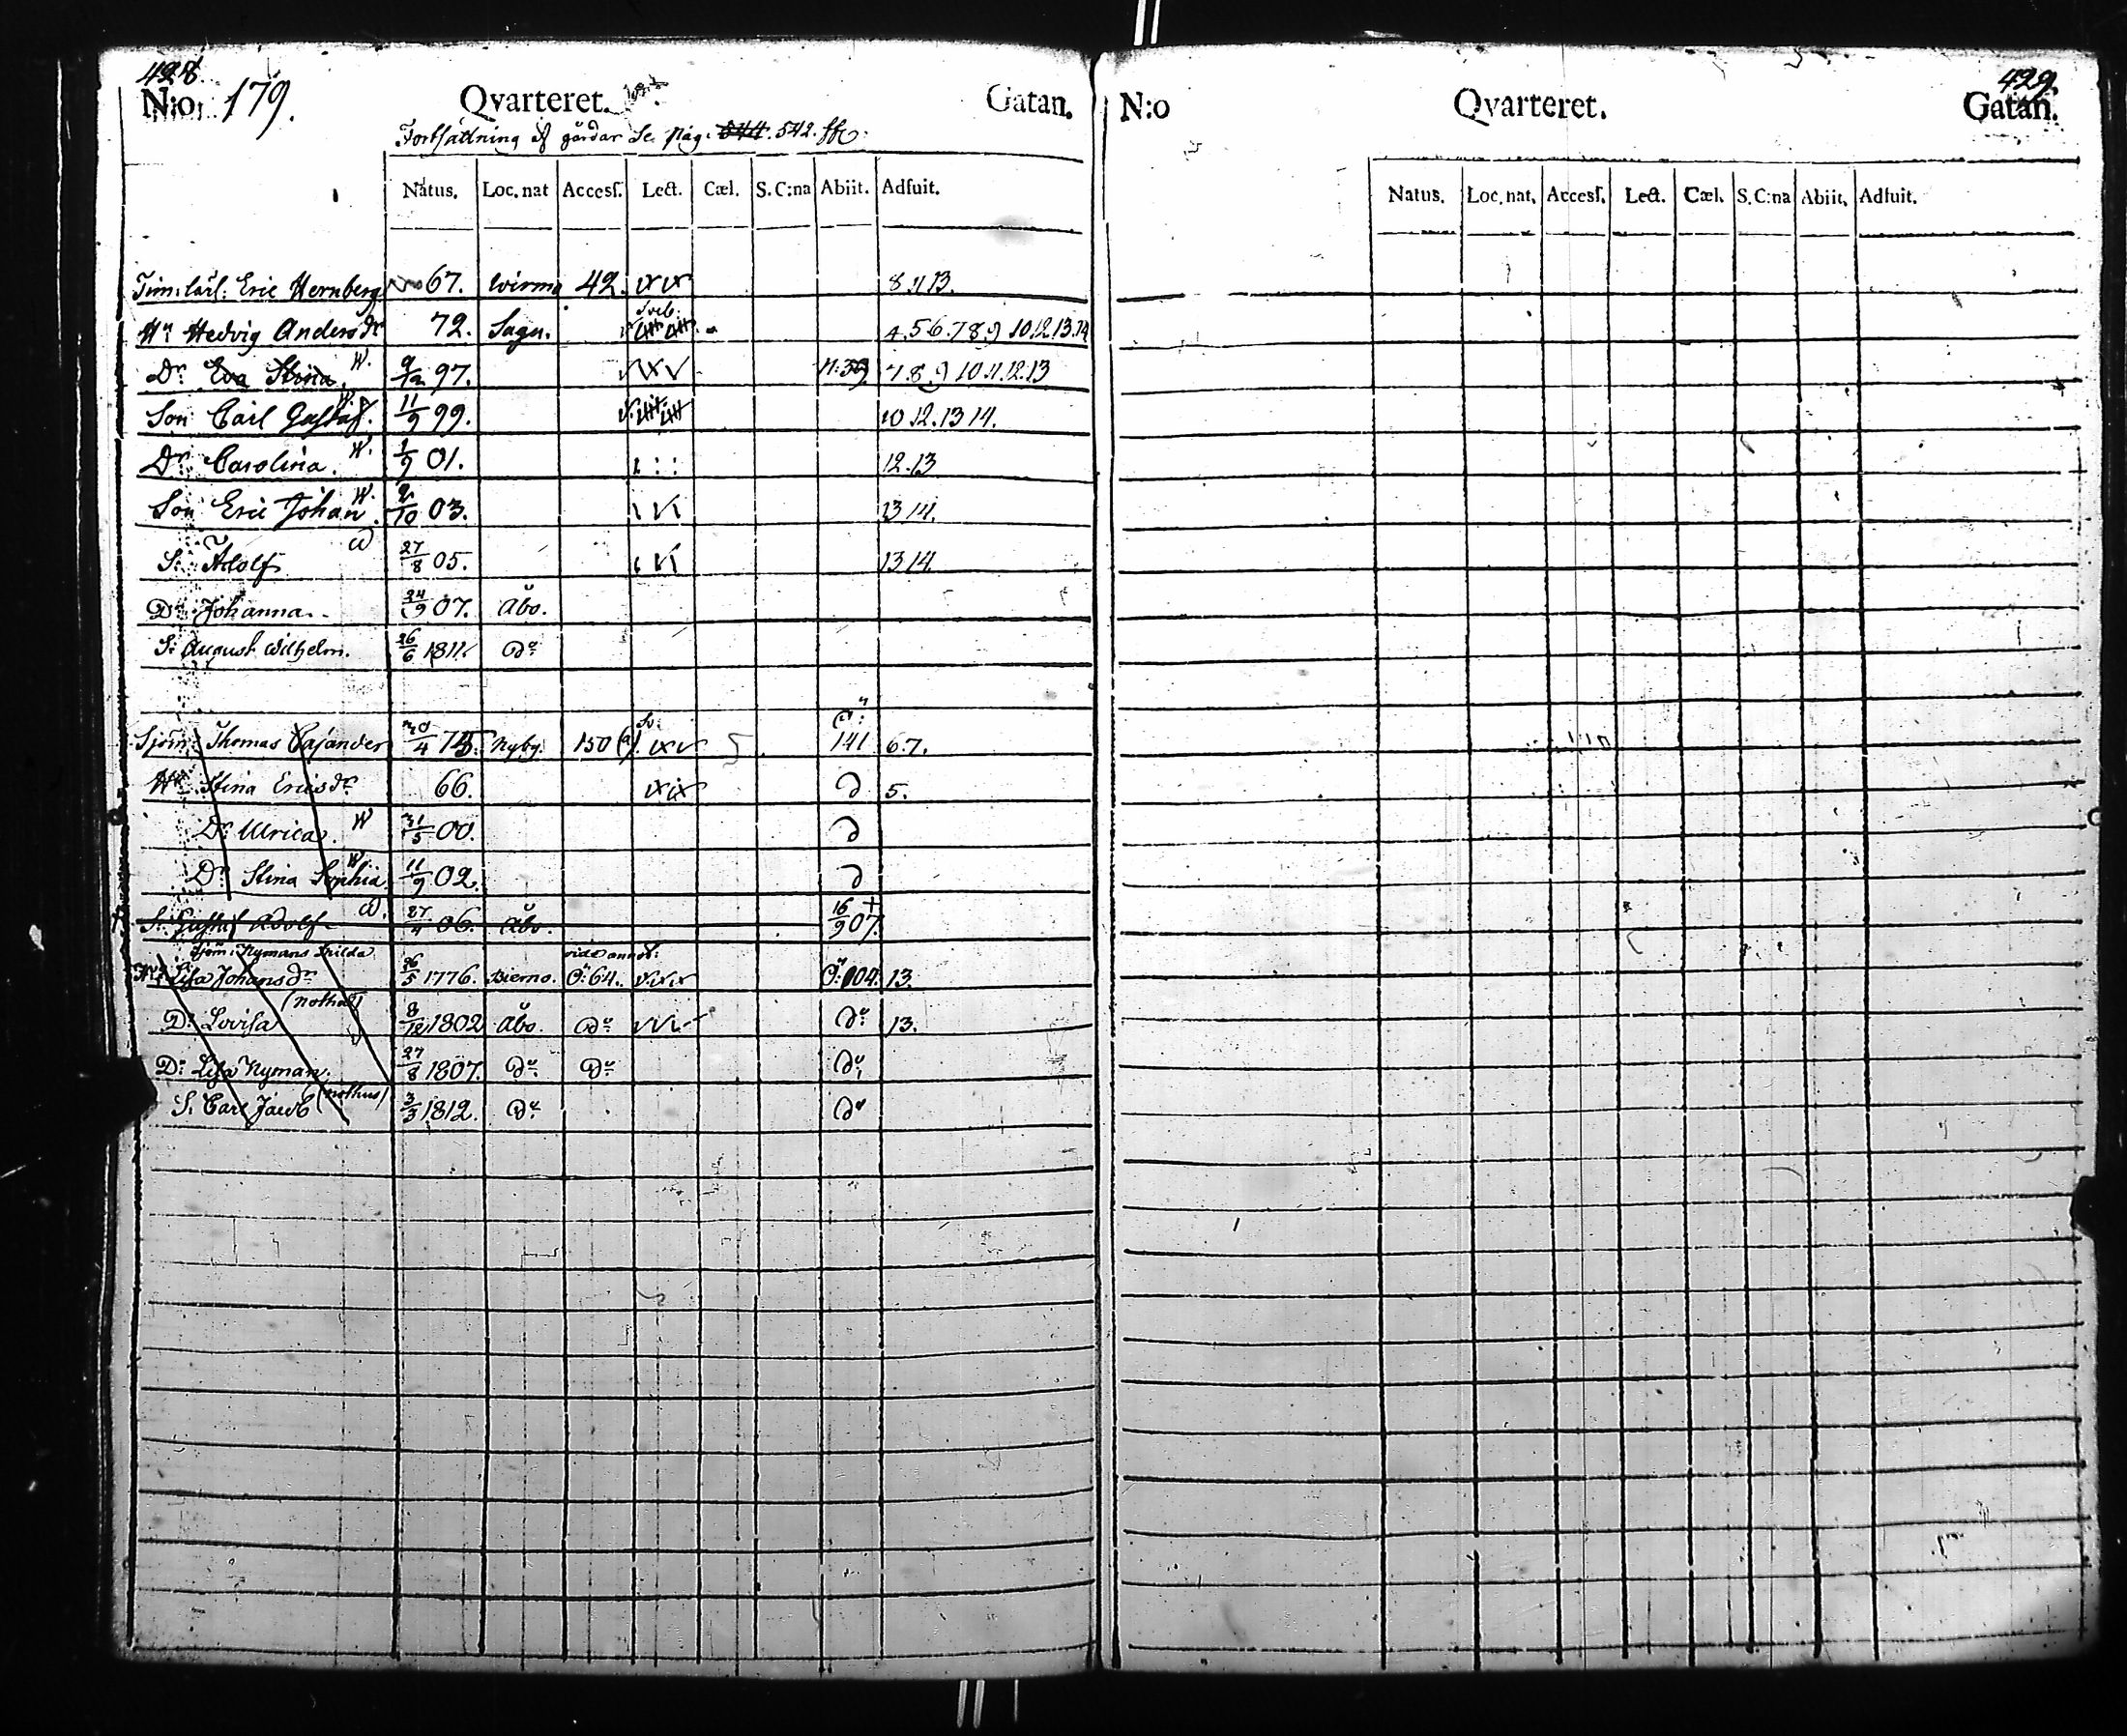 428.
N:o 179. Qvarteret. Gatan.
Fortsättning af gårdar Se pag: 544. 542. ffr.
Natus. Loc. nat Accesſ. Lect. Cæl. S. C:na Abiit. Adfuit.
Tim: karl: Eric Wernberg 67. Wirmo 42. 8 11 13.
Hu Hedvig Andersdr 72. Sagu. 4. 5 6. 7 8. 9 10. 12. 13. 14
Dr Eva Stina. W. 9/12 97. 7. 8. 9 10. 11. 12. 13
Son Carl Gustaf. W. 11/9 99. 10. 12. 13 14.
Dr Carolina. W. 1/9 01. 12. 13
Son Eric Johan. W. 2/10 03. 13 14.
S: Adolf W 27/8 05. 13 14.
Dr Johanna. 24/9 07. Åbo.
S: August Wilhelm. 26/6 1811. Do
Sjöm: Thomas Cajander 20/4 75. Nyby. 150 (a) Sv. 141 6. 7.
Hu Stina Ericsdr 66. D 5.
Dr Ulrica. W 31/5 00. D
Dr Stina Sophia. W. 11/9 02. D
S: Gustaf Adolf W. 27/4 06. Åbo. 16/9 07. +
Sjöm: Nymans skilda vide annot:
Hu Lisa Johansdr 26/5 1776. Bierno. Ö: 64. Ö: 104. 13.
Dr Lovisa (notha) 8/12 1802 Åbo. Do Do 13.
Dr Lisa Nyman. 27/8 1807. Do Do Do
S. Carl Jacob (nothus) 3/3 1812. Do Do
429.
N:o Qvarteret. Gatan.
Natus. Loc. nat. Accesſ. Lect. Cæl. S. C:na Abiit. Adfuit.